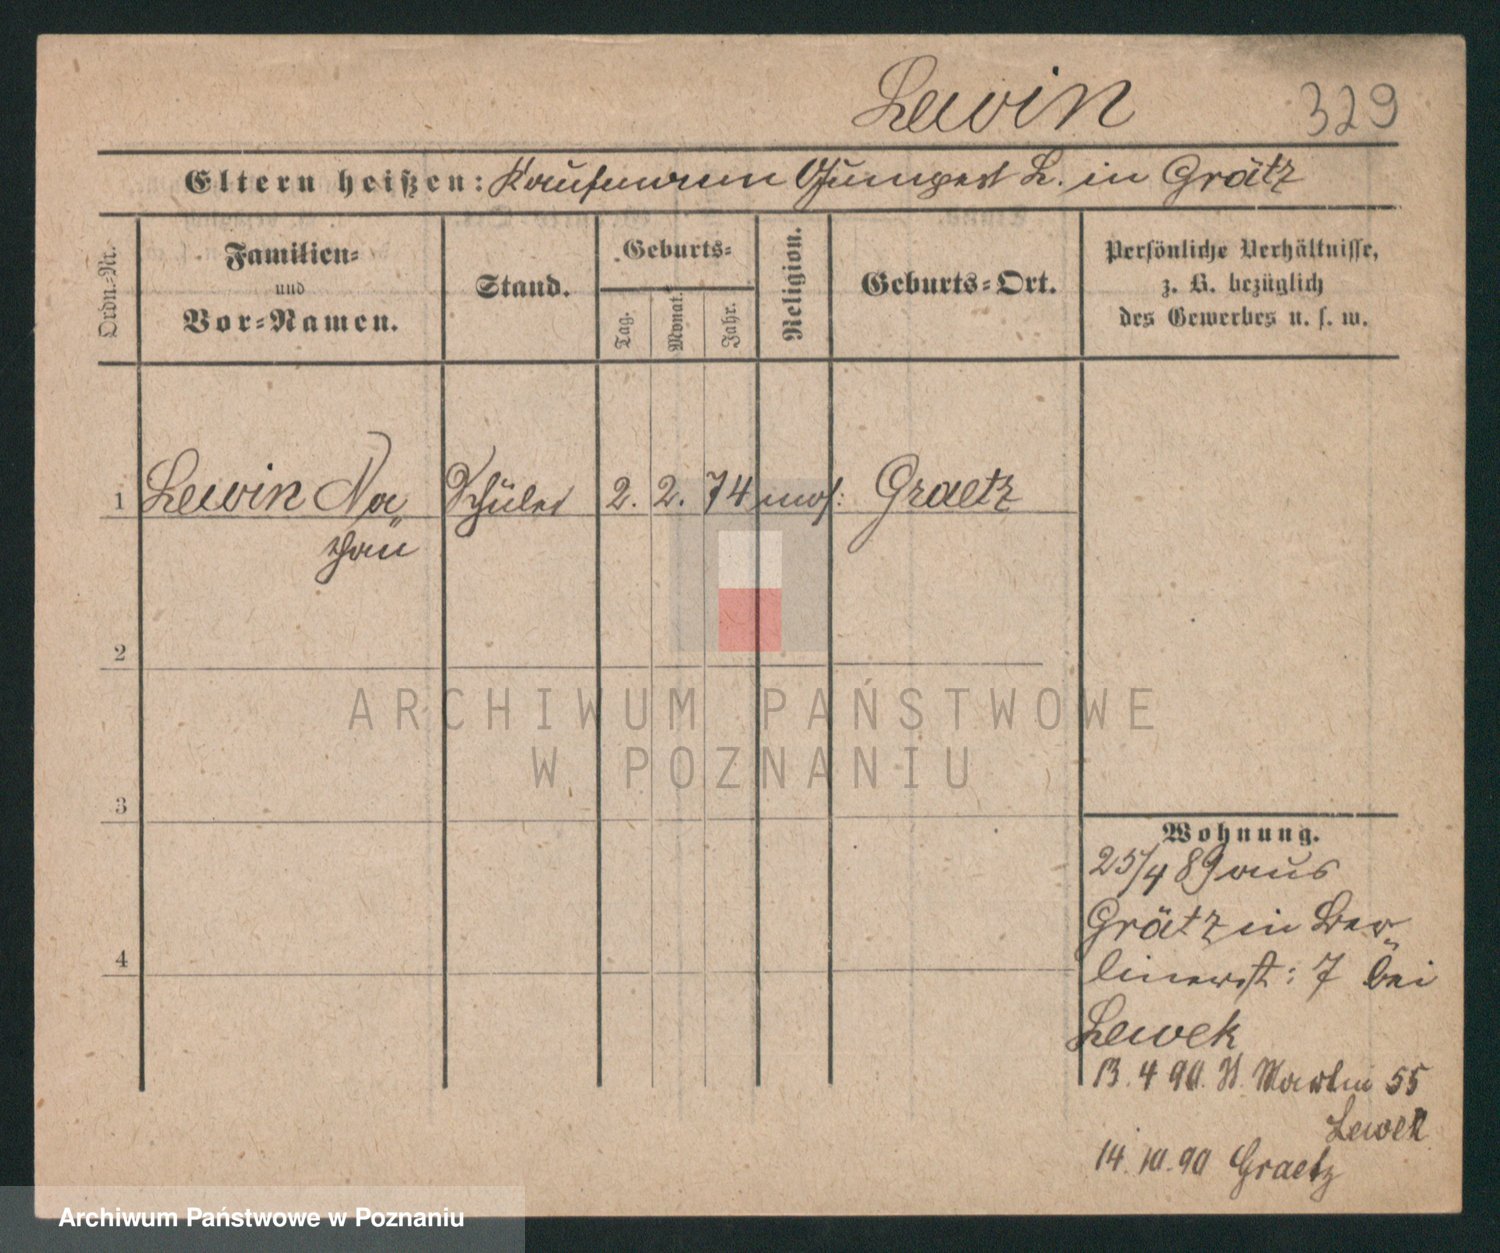 Lewin 329
Eltern heißen: Kaufmann Gumpert L. in Grätz
Ordn.-Nr.
Familien-
und
Vor-Namen.
Stand.
Geburts-
Tag.
Monat.
Jahr.
Religion.
Geburts-Ort.
Persönliche Verhältnisse,
z. B. bezüglich
des Gewerbes u. s. w.
1 Lewin Na= Schüler 2. 2. 74 mos: Graetz
than
2
3
4
Wohnung.
25/4 89 aus
Grätz in Ber=
linerst: 7 bei
Lewek
13. 4 90. St. Martin 55
Lewek
14. 10. 90 Graetz
ARCHIWUM PAŃSTWOWE
W POZNANIU
Archiwum Państwowe w Poznaniu